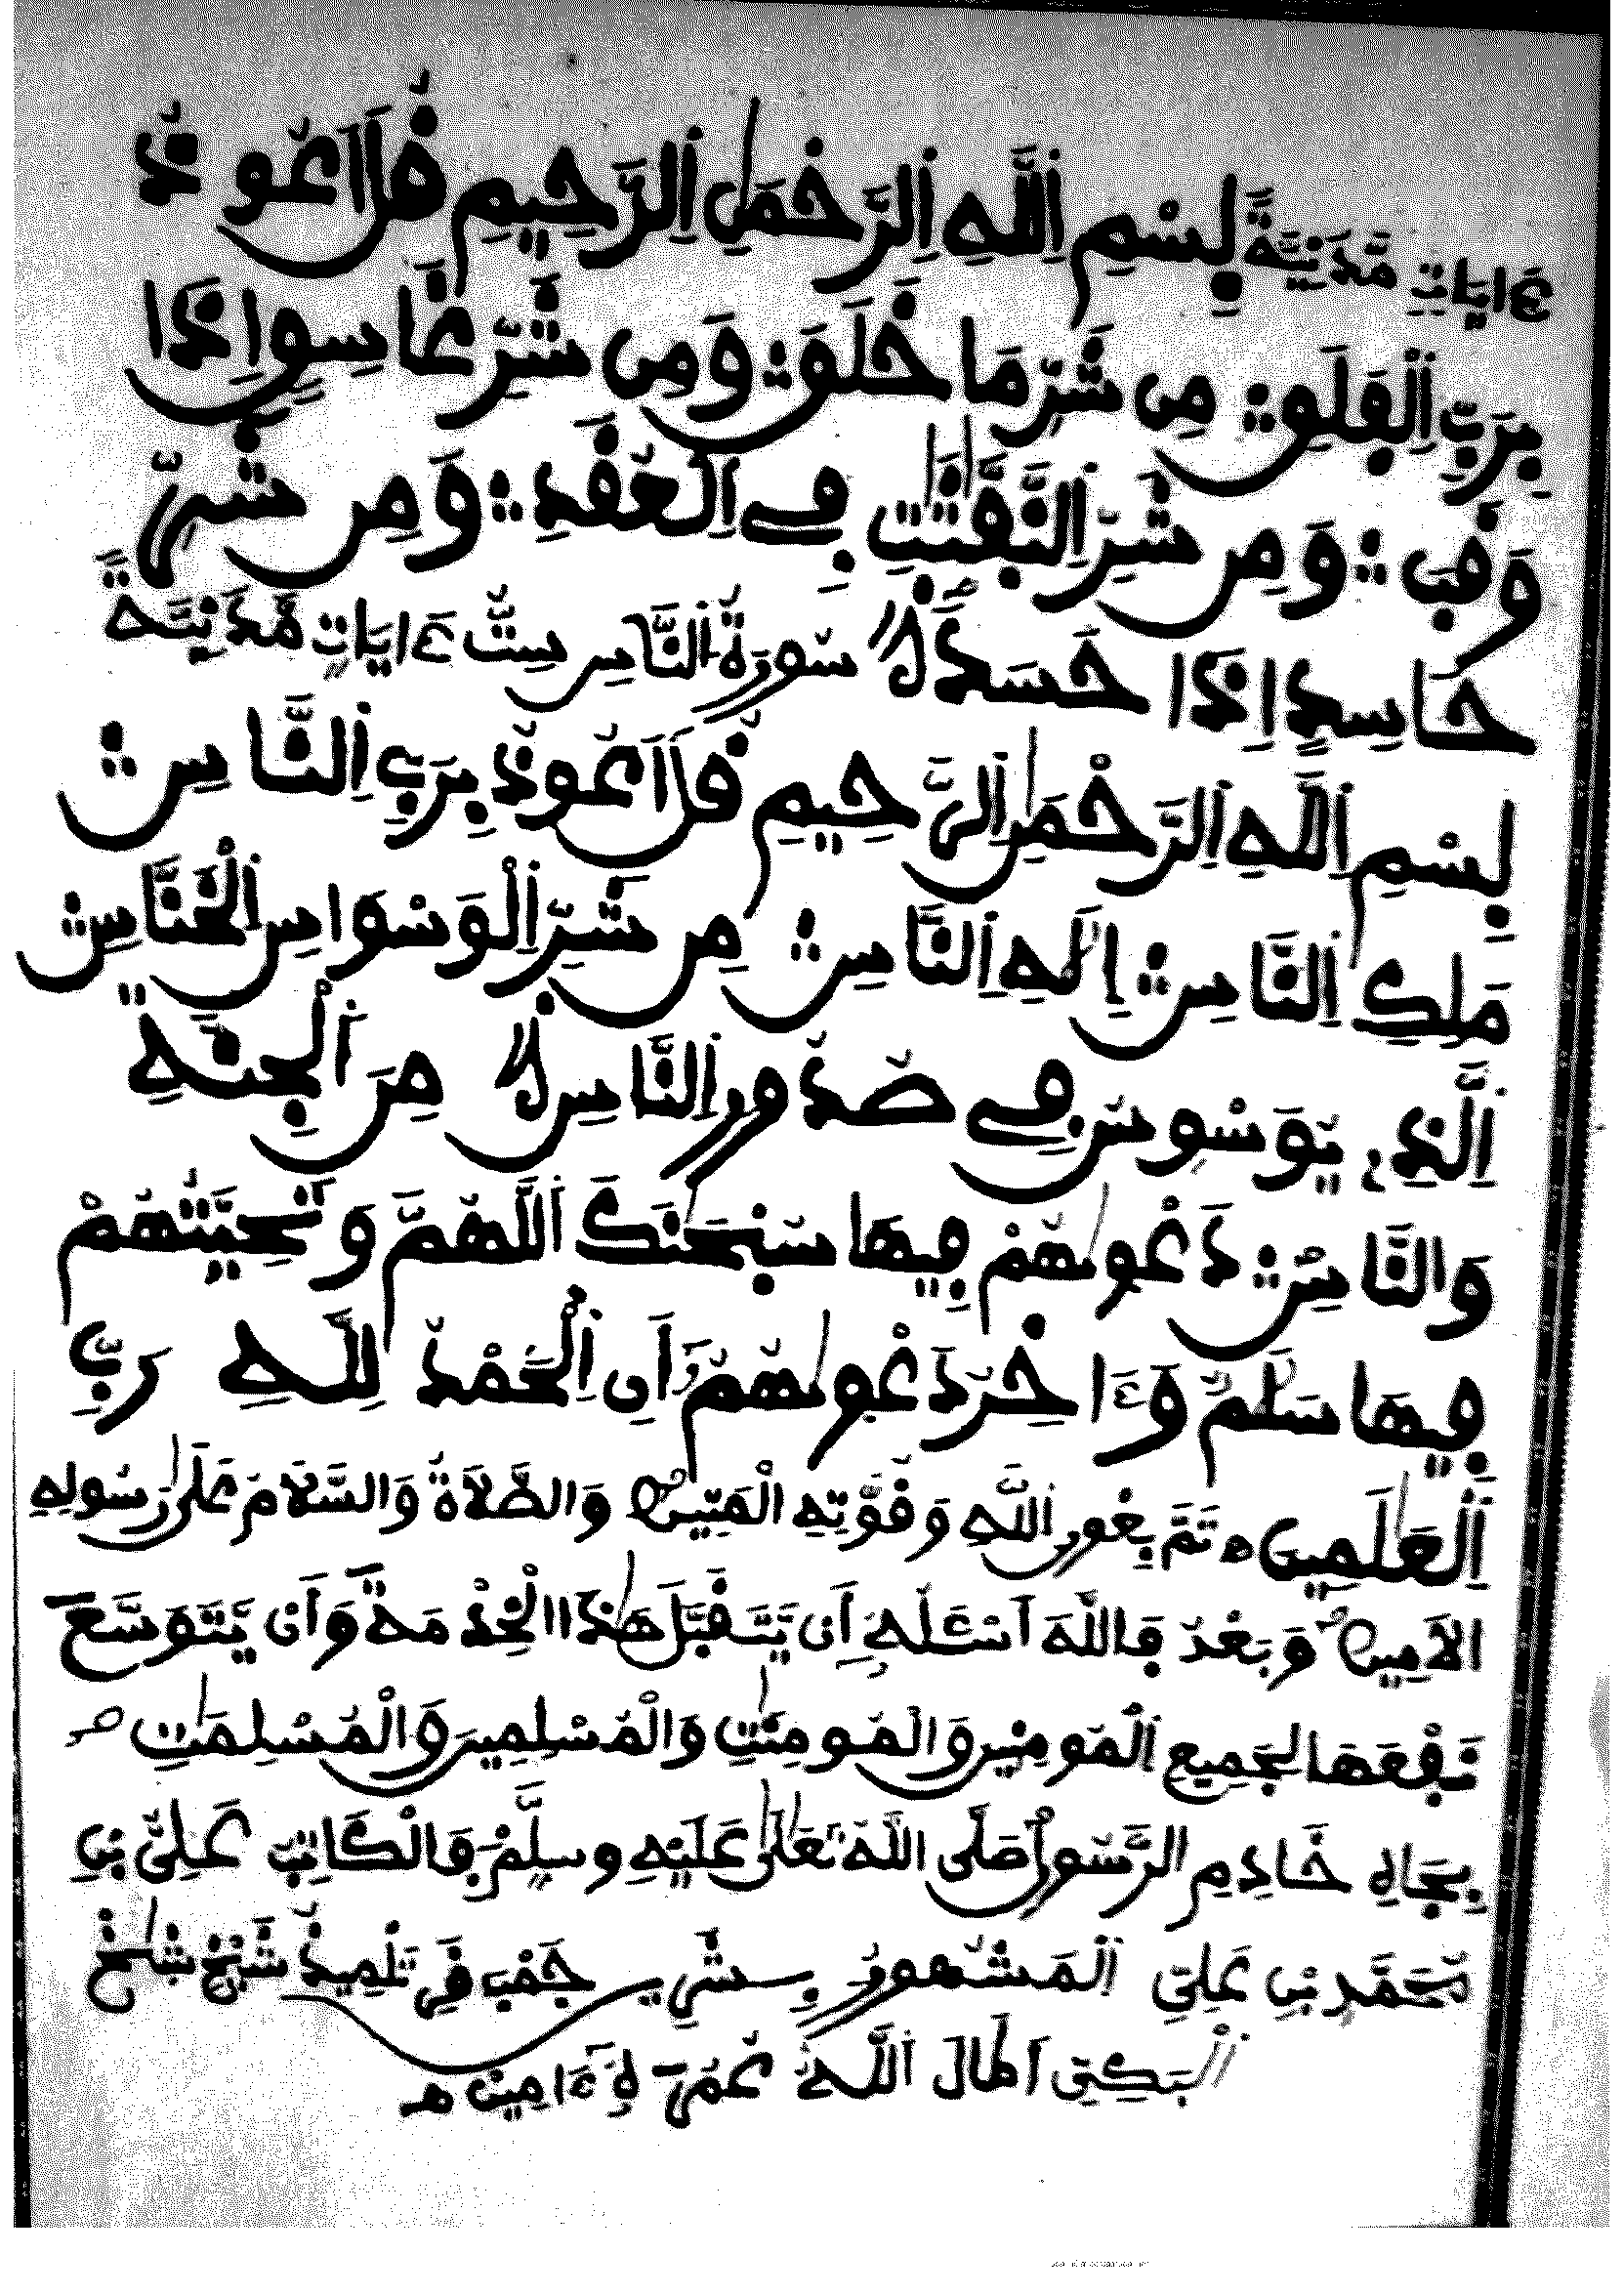 ءايات مدنية بِسْمِ اِللَّهِ اِلرَّحْمَٰنِ اِلرَّحِيمِ قُلَ اَعُوذُ
بِرَبِّ اِلْفَلَقِ مِن شَرِّ مَا خَلَقَ وَمِن شَرِّ غَاسِقٍ اِذَا
وَقَبَ وَمِن شَرِّ اِلنَّفَّٰثَٰتِ فِے اِلْعُقَدِ وَمِن شَرِّ
حَاسِدٍ اِذَا حَسَدَ سورة اَلنَّاسِ ستُّ ءايات مَدَنِيَّةٌ
بِسْمِ اِللَّهِ اِلرَّحْمَٰنِ اِلرَّحِيمِ قُلَ اَعُوذُ بِرَبِّ اِلنَّاسِ
مَلِكِ اِلنَّاسِ إِلَٰهِ اِلنَّاسِ مِن شَرِّ اِلْوَسْوَاسِ اِلْخَنَّاسِ
اِلَّذِے يُوَسْوِسُ فِے صُدُورِ اِلنَّاسِ مِنَ اَلْجِنَّةِ
وَالنَّاسِ دَعْوٰهُمْ فِيهَا سُبْحَٰنَكَ اَللَّهُمَّ وَتَحِيَّتُهُمْ
فِيهَا سَلَٰمٌ وَءَاخِرُ دَعْوٰهُمُ أَنِ اِلْحَمْدُ لِلهِ رَبِّ
اِلْعَٰلَمِينَ ه تَمَّ بِعَوْنِ اللَّهِ وَقُوَّتِهِ الْمَتِينِ وَالصَّلَاةُ وَالسَّلَامُ عَلَىٰ رَسُولِهِ
الأَمِينِ وَبَعْدُ فَاللَّهَ أَسْئَلُهُ أَن يَّتَقَبَّلَ هَٰذَا الْخِدْمَةَ وَأَن يَّتَوَسَّعَ
نَفْعَهَا لِجَمِيعِ اَلْمُومِنِينَ وَالْمُومِنَٰتِ وَالْمُسْلِمِينَ وَالْمُسْلِمَٰتِ
بِجَاهِ خَادِمِ الرَّسُولِ صَلَّى اللَّهُ تَعَلَىٰ عَلَيْهِ وسلِّمْ فَالْكَاتِبُ عَلِيُّ بْنِ
مُحَمَّدِ بْنِ عَلِيّ اَلْمَشْهُورُ تِلْمِيذُ
اَطَالَ اَللَّهُ عُمُرَهُ ءَامِين هـ